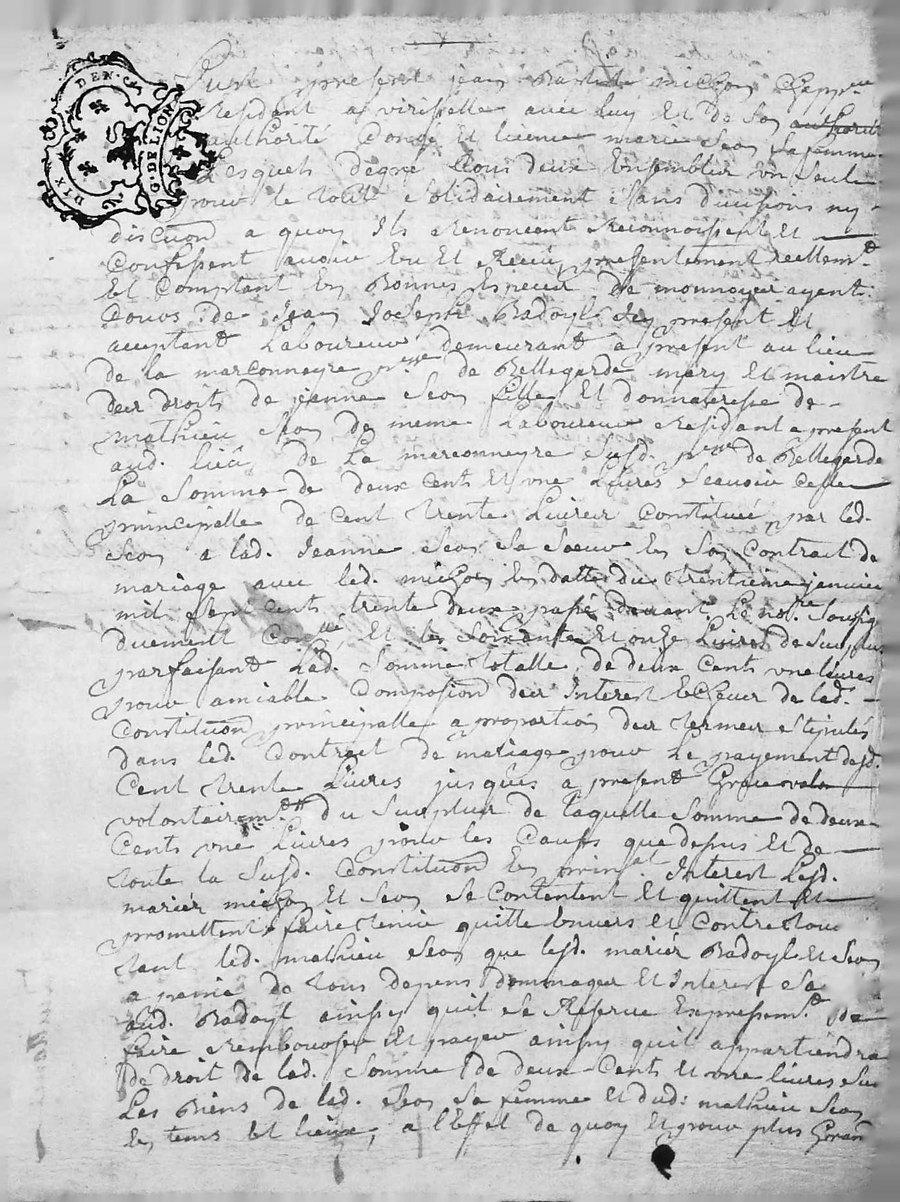 DIX DEN.
G. DE LION
Fust present jean Baptiste michon
Resident a virisselle avec luy Et de son authorité
authorité Conge Et licence marie Seon sa femme
Lesquels degré tous deux Ensembles un seul
pour le tout solidairement sans divisions ny
discution a quoy Ils Renoncent Reconnoissent Et
Confessent avoir Eu Et Receu presentement reellemt
Et Comptant En Bonnes Especes de monnoyes ayent
Cours de Jean Joseph Badoyl Icy present Et
acceptant Laboureur demeurant a present au lieu
de la marconneyre psse de Bellegarde mary Et maistre
des droits de jeanne Seon fille Et donnateresse de
mathieu Seon de meme Laboureur Residant a present
aud. lieu de La marconneyre susd. psse de Bellegarde
La somme de deux Cents Et une Livres scavoir celle
principalle de Cent trente Livres Constituée par led.
Seon a lad. Jeanne Seon sa soeur En son Contract de
mariage avec led. michon En datte du trentieme janvier
mil sept cents trente deux passé devant Le nore soussig
duement Conllé, Et les soixante Et onze Livres de surplus
parfaisant Lad. somme totalle de deux Cents une livres
pour amiable Composion des Interest Echeus de lad.
Constitution principalle a proportion des termes stipulés
dans led. Contract de mariage pour Le payement desd.
Cent trente Livres jusques a present
volontairemt du surplus de laquelle somme de deux
Cents une Livres pour les Causes que depuis Et de
toute la susd. Constitution En prinal Interest Lesd.
mariés michon Et Seon se Contentent Et quittent Et
promettent faire tenir quitte Envers Et Contre tous
tant led. mathieu Seon que lesd. mariés Badoyl Et Seon
a peine de tous depens dommages Et Interest
aud. Badoyl ainsy quil se Reserve Expressemt de
faire rembourser Et payer ainsy quil appartiendra
de droit de lad. somme de deux Cents Et une livres sur
Les Biens de lad. Seon sa femme Et dud. mathieu Seon
En tems Et lieux, a l'Effet de quoy Et pour plus Gran